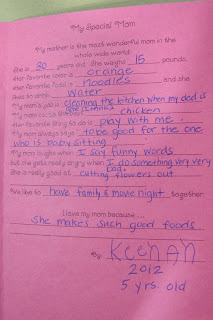 My Special Mom
My mother is the most wonderful mom in the
whole wide world!
She is 30 years old. She weighs 15 pounds.
Her favorite color is orange
Her favorite food is noodles and she
loves to drink water
My mom's job is cleaning the kitchen when my dad is
at
My mom cooks chicken
Her favorite thing to do is play with me.
My mom always says to be good for the one
who is baby sitting
My mom laughs when I say funny words
But she gets really angry when I do something very very
bad.
She is really good at cutting flowers out
We like to have family & movie night together.
I love my mom because ...
She makes such good foods
By KEENAN
2012
5 yrs old